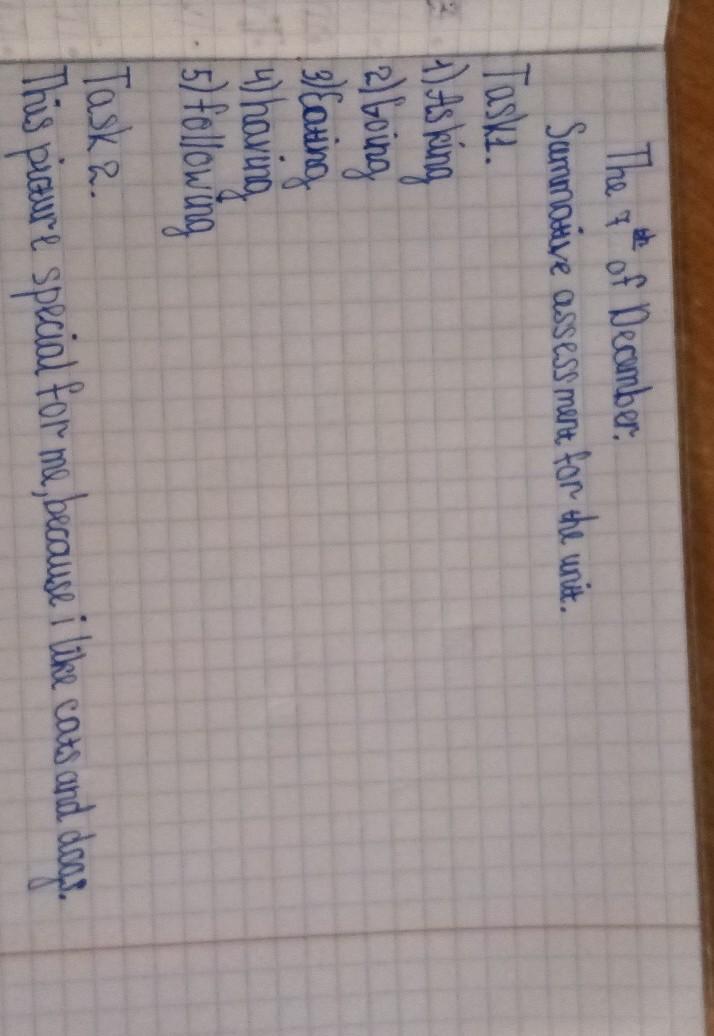 The 7th of December.
Summative assessment for the unit.
Task1.
1) Asking
2) Going
3) Eating
4) having
5) following
Task 2.
This picture special for me, because i like cats and dogs.